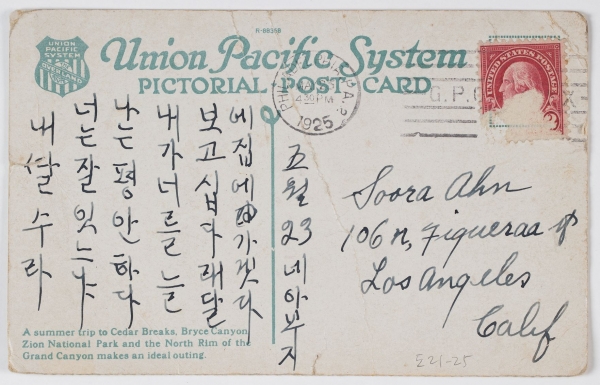 R-68358
UNION
PACIFIC
SYSTEM
OVERLAND
Union Pacific System
PICTORIAL POST CARD
1925
G.P.O
UNITED STATES POSTAGE
내딸수라
너는잘잇느냐
나는평안하다
내가너를늘
보고십다래달
에집에가겟다
五월23네아부지
Soora Ahn
106 N, Figueraa st
Los Angeles
Calif
A summer trip to Cedar Breaks, Bryce Canyon,
Zion National Park and the North Rim of the
Grand Canyon makes an ideal outing.
E21-25